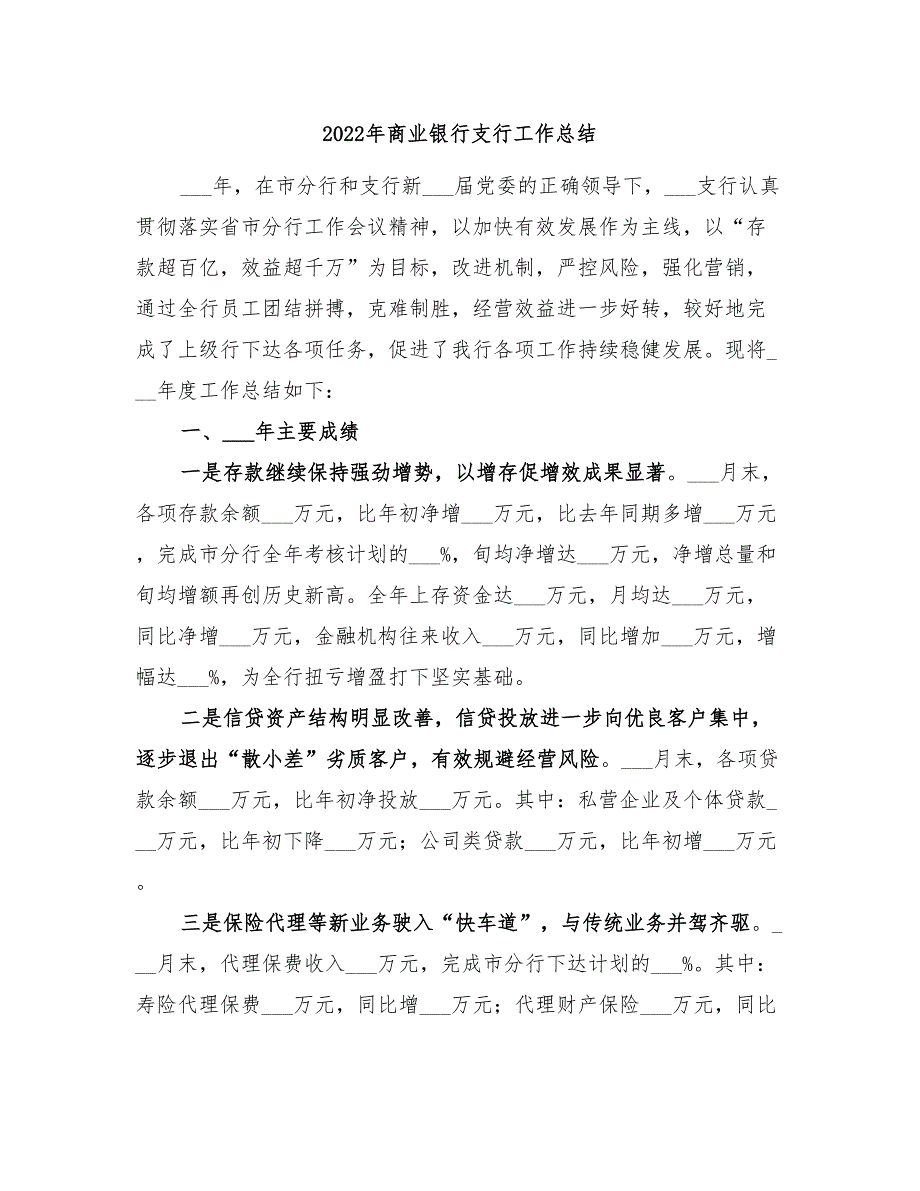 2022年商业银行支行工作总结
___年，在市分行和支行新___届党委的正确领导下，___支行认真
贯彻落实省市分行工作会议精神，以加快有效发展作为主线，以“存
款超百亿，效益超千万”为目标，改进机制，严控风险，强化营销，
通过全行员工团结拼搏，克难制胜，经营效益进一步好转，较好地完
成了上级行下达各项任务，促进了我行各项工作持续稳健发展。现将_
__年度工作总结如下：
一、___年主要成绩
一是存款继续保持强劲增势，以增存促增效成果显著。___月末，
各项存款余额___万元，比年初净增___万元，比去年同期多增___万元
，完成市分行全年考核计划的___%，旬均净增达___万元，净增总量和
旬均增额再创历史新高。全年上存资金达___万元，月均达___万元，
同比净增___万元，金融机构往来收入___万元，同比增加___万元，增
幅达___%，为全行扭亏增盈打下坚实基础。
二是信贷资产结构明显改善，信贷投放进一步向优良客户集中，
逐步退出“散小差”劣质客户，有效规避经营风险。___月末，各项贷
款余额___万元，比年初净投放___万元。其中：私营企业及个体贷款_
__万元，比年初下降___万元；公司类贷款___万元，比年初增___万元
。
三是保险代理等新业务驶入“快车道”，与传统业务并驾齐驱。_
__月末，代理保费收入___万元，完成市分行下达计划的___%。其中：
寿险代理保费___万元，同比增___万元；代理财产保险___万元，同比